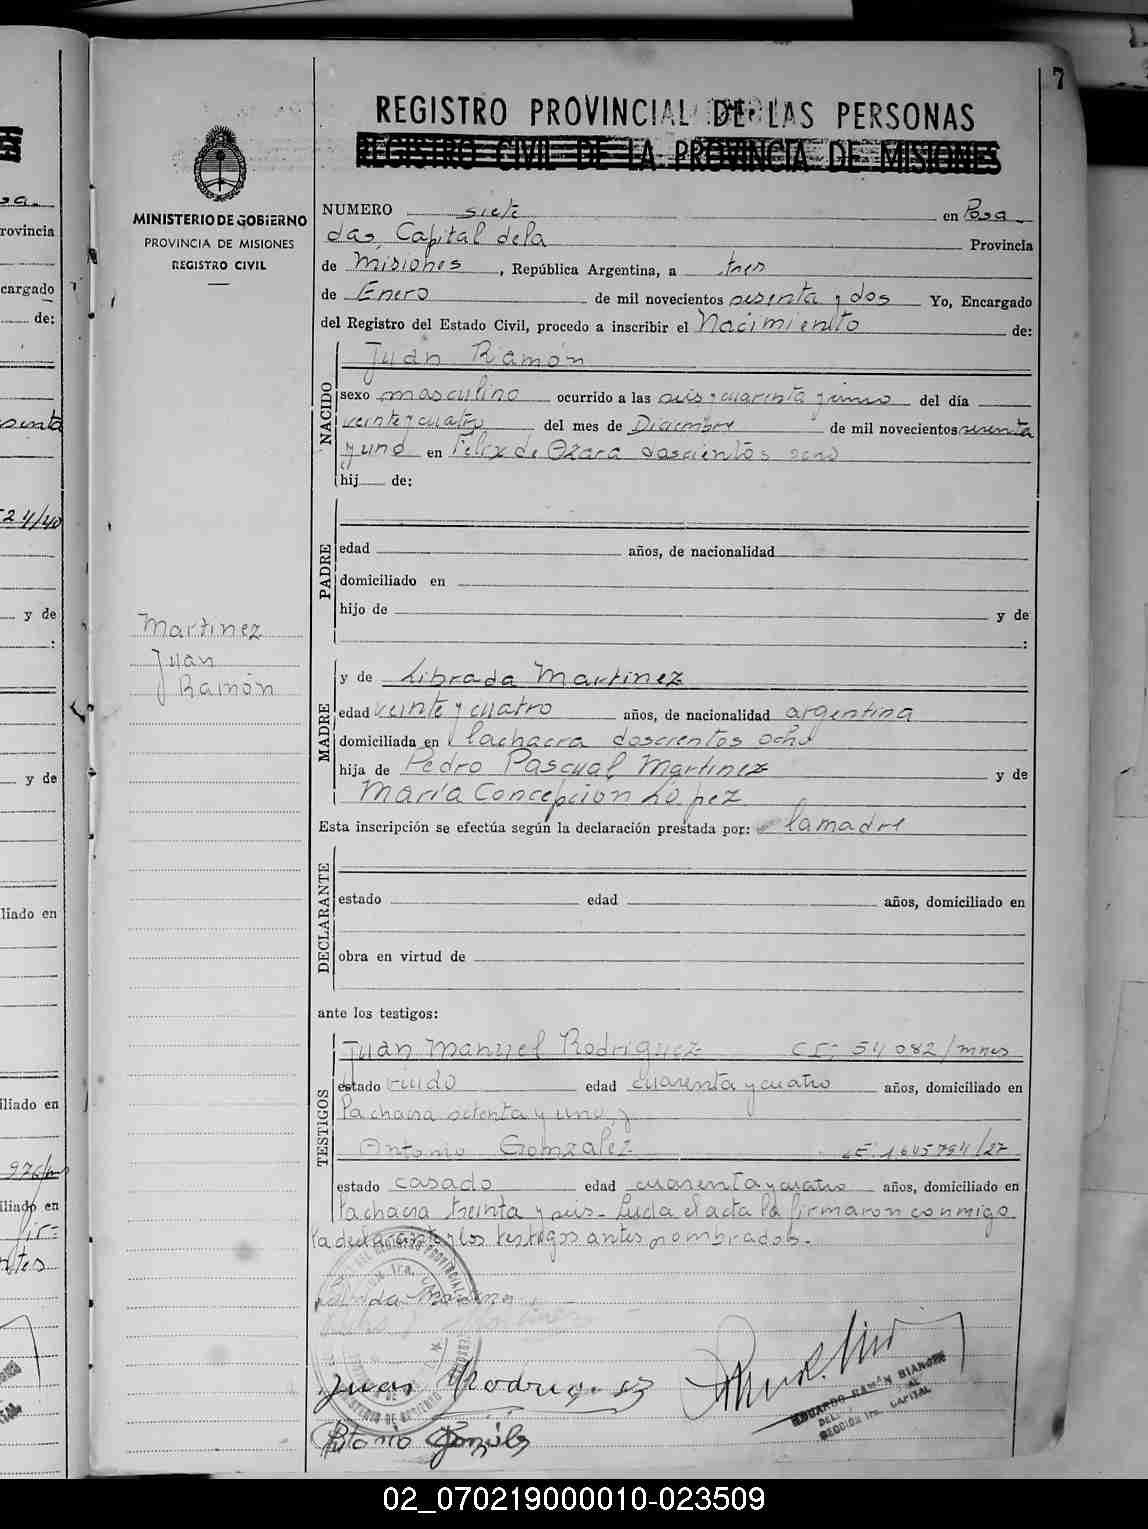 7
REGISTRO PROVINCIAL DE LAS PERSONAS
REGISTRO CIVIL DE LA PROVINCIA DE MISIONES
MINISTERIO DE GOBIERNO
PROVINCIA DE MISIONES
REGISTRO CIVIL
NUMERO siete en Posa-
das, Capital dela Provincia
de Misiones, República Argentina, a tres
de Enero de mil novecientos sesenta y dos Yo, Encargado
del Registro del Estado Civil, procedo a inscribir el Nacimiento de:
Juan Ramón
NACIDO
sexo masculino ocurrido a las seis y cuarenta y cinco del día
veinte y cuatro del mes de Diciembre de mil novecientos sesenta
y uno en Felix de Azara doscientos
hij de:
PADRE
edad años, de nacionalidad
domiciliado en
hijo de y de
:
Martinez
Juan
Ramón
MADRE
y de Librada Martinez
edad veinte y cuatro años, de nacionalidad argentina
domiciliada en lachacra doscientos ocho
hija de Pedro Pascual Martinez y de
María Concepcion López
Esta inscripción se efectúa según la declaración prestada por: lamadre
DECLARANTE
estado edad años, domiciliado en
obra en virtud de
ante los testigos:
TESTIGOS
Juan Manuel Rodriguez CI: 54 082/mnes
estado edad cuarenta y cuatro años, domiciliado en
lachacra setenta y uno, y
Antonio Gomzalez LE: 1.645794/27
estado casado edad cuarenta y cuatro años, domiciliado en
lachacra treinta y seis- Leida el acta la firmaron conmigo
la declarante y los testigos antes nombrados.
Juan Rodriguez
Antonio González
EDUARDO RAMÓN BIANCHI
SECCIÓN 1ra. CAPITAL
rovincia
cargado
de:
24/40
y de
:
y de
liado en
iliado en
iliado en
02_070219000010-023509